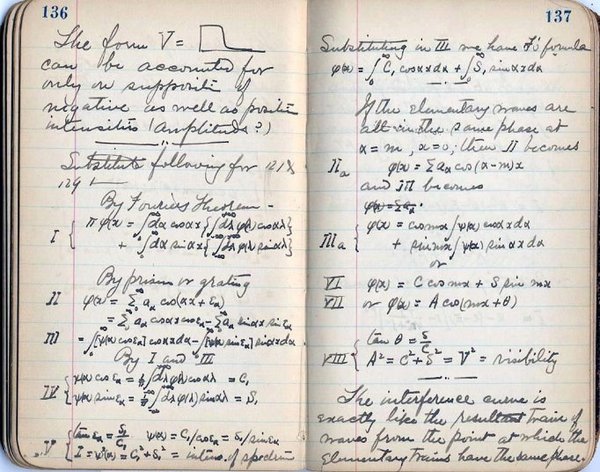 136
The form V =
can be accounted for
only on supposition of
negative as well as positive
intensities (amplitude?)
Substitute following for 121 &
129
By Fourier's Theorem -
I { π φ(x) = ∫dα cos αx {∫dλ φ(λ) cos αλ}
+ ∫dα sin αx {∫dλ φ(λ) sin αλ}
By prism or grating
II φ(x) = Σ aα cos(αx + εα)
= Σ aα cos αx cos εα - Σ aα sin αx sin εα
III = ∫[ψ(α) cos εα] cos αx dα - ∫[ψ(α) sin εα] sin αx dα
By I and III
IV { ψ(α) cos εα = ∫dλ φ(λ) cos αλ = C₁
ψ(α) sin εα = ∫dλ φ(λ) sin αλ = S₁
V { tan εα = S₁/C₁ ψ(α) = C₁/cos εα = S₁/sin εα
I = ψ²(α) = C₁² + S₁² = intens. of spectrum
137
Substituting in III we have formula
φ(x) = ∫C₁ cos αx dα + ∫S₁ sin αx dα
If the elementary waves are
all in the same phase at
α = m, x = 0; then II becomes
IIa φ(x) = Σ aα cos(α-m)x
and III becomes
φ(x) = Σ aα
IIIa { φ(x) = cos mx ∫ψ(α) cos αx dα
+ sin mx ∫ψ(α) sin αx dα
or
VI φ(x) = C cos mx + S sin mx
VII or φ(x) = A cos(mx + θ)
VIII { tan θ = S/C
A² = C² + S² = V² = visibility
The interference curve is
exactly like the resultant train of
waves from the point at which the
elementary trains have the same phase.